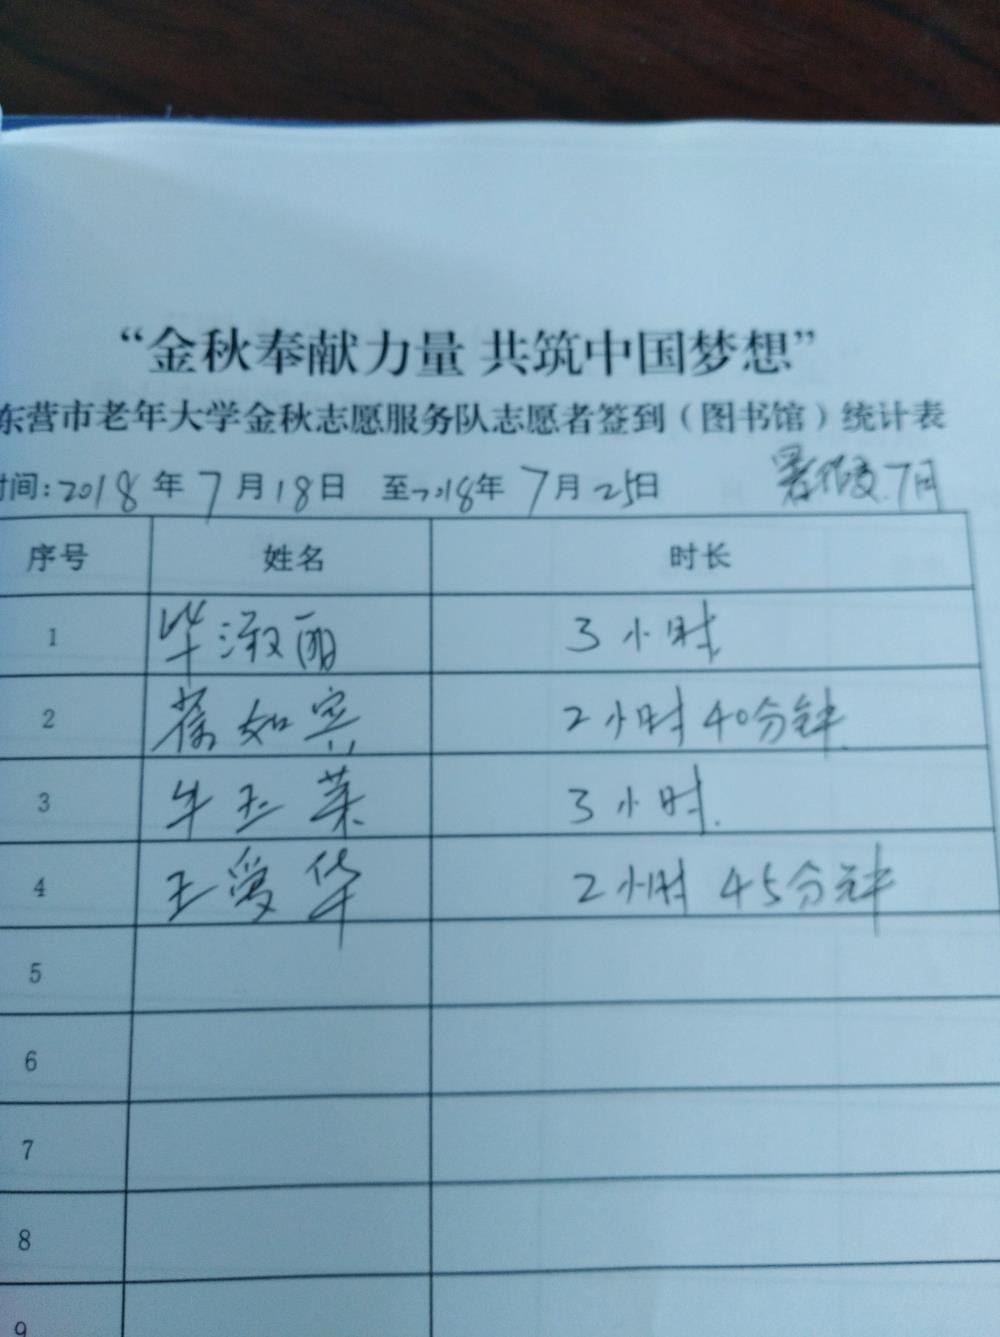 “金秋奉献力量 共筑中国梦想”
东营市老年大学金秋志愿服务队志愿者签到（图书馆）统计表
时间:2018年7月18日 至2018年7月25日 暑假 7月
序号 姓名 时长
1 毕淑丽 3小时
2 如宾 2小时40分钟
3 牛玉英 3小时.
4 王爱华 2小时45分钟
5
6
7
8
9